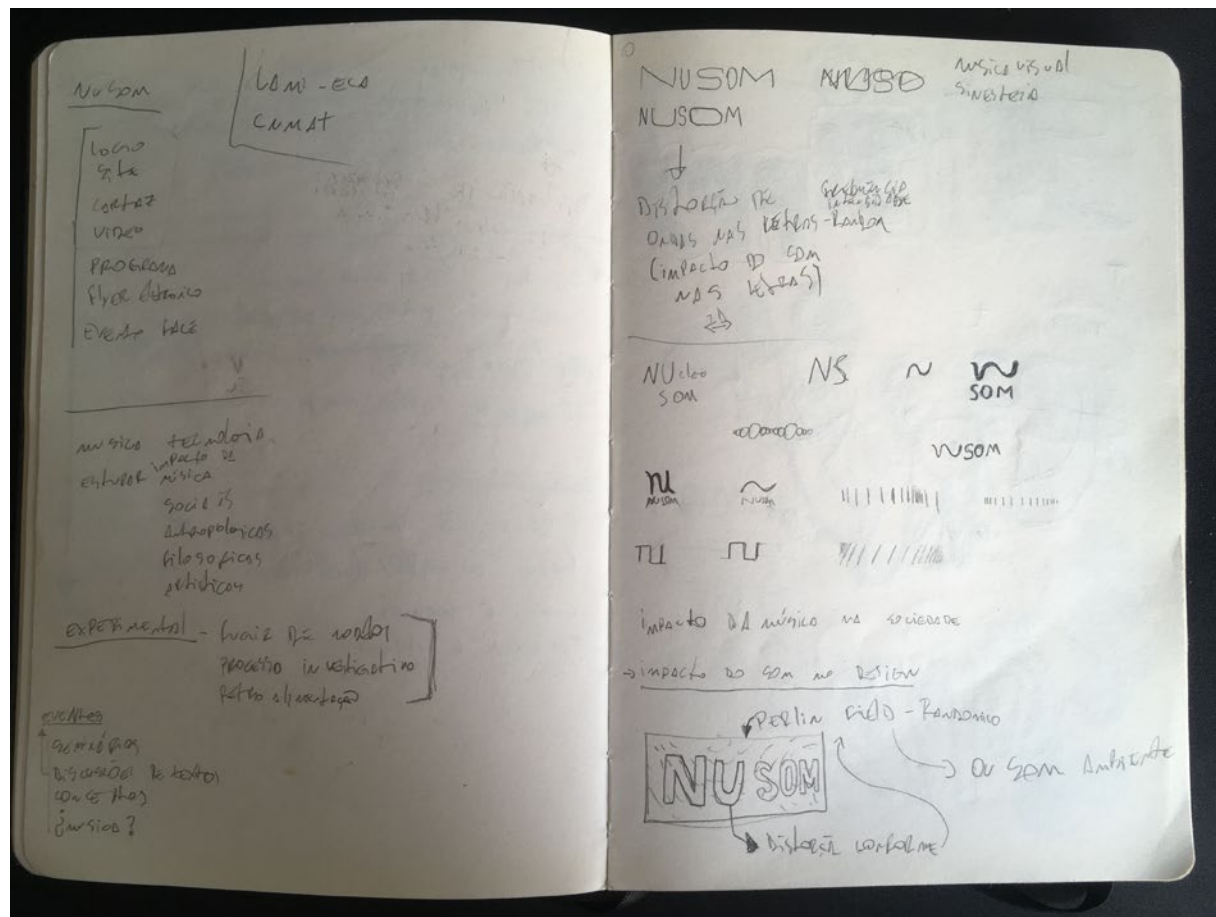 NUSOM
LAMI-ECA
CNMAT
LOGO
SITE
CARTAZ
VIDEO
PROGRAMA
FlyER
EVENTO FACE
MUSICA TECNOLOGIA
ESTUDAR IMPACTO DA
MÚSICA
SOCIAIS
ANTROPOLOGICOS
FILOSOFICOS
ARTISTICOS
EXPERIMENTAL - FUGIR DE
PROCESSO INVESTIGATIVO
RETRO ALIMENTAÇÃO
EVENTOS
SEMINÁRIOS
DISCUSSÕES DE TEXTOS
CONCERTOS
¿MUSICA?
NUSOM NUSO
MUSICA VISUAL
SINESTESIA
NUSOM
DISTORÇÃO DE
ONDAS NAS LETRAS - RANDOM
(IMPACTO DO SOM
NAS LETRAS)
NUcleo
SOM
NS
SOM
NUSOM
NU
NUSOM
NUSOM
IMPACTO DA MÚSICA NA SOCIEDADE
→ IMPACTO DO SOM NO DESIGN
PERLIN - RANDOMICO
OU SOM AMBIENTE
NUSOM
DISTORÇÃO CONFORME